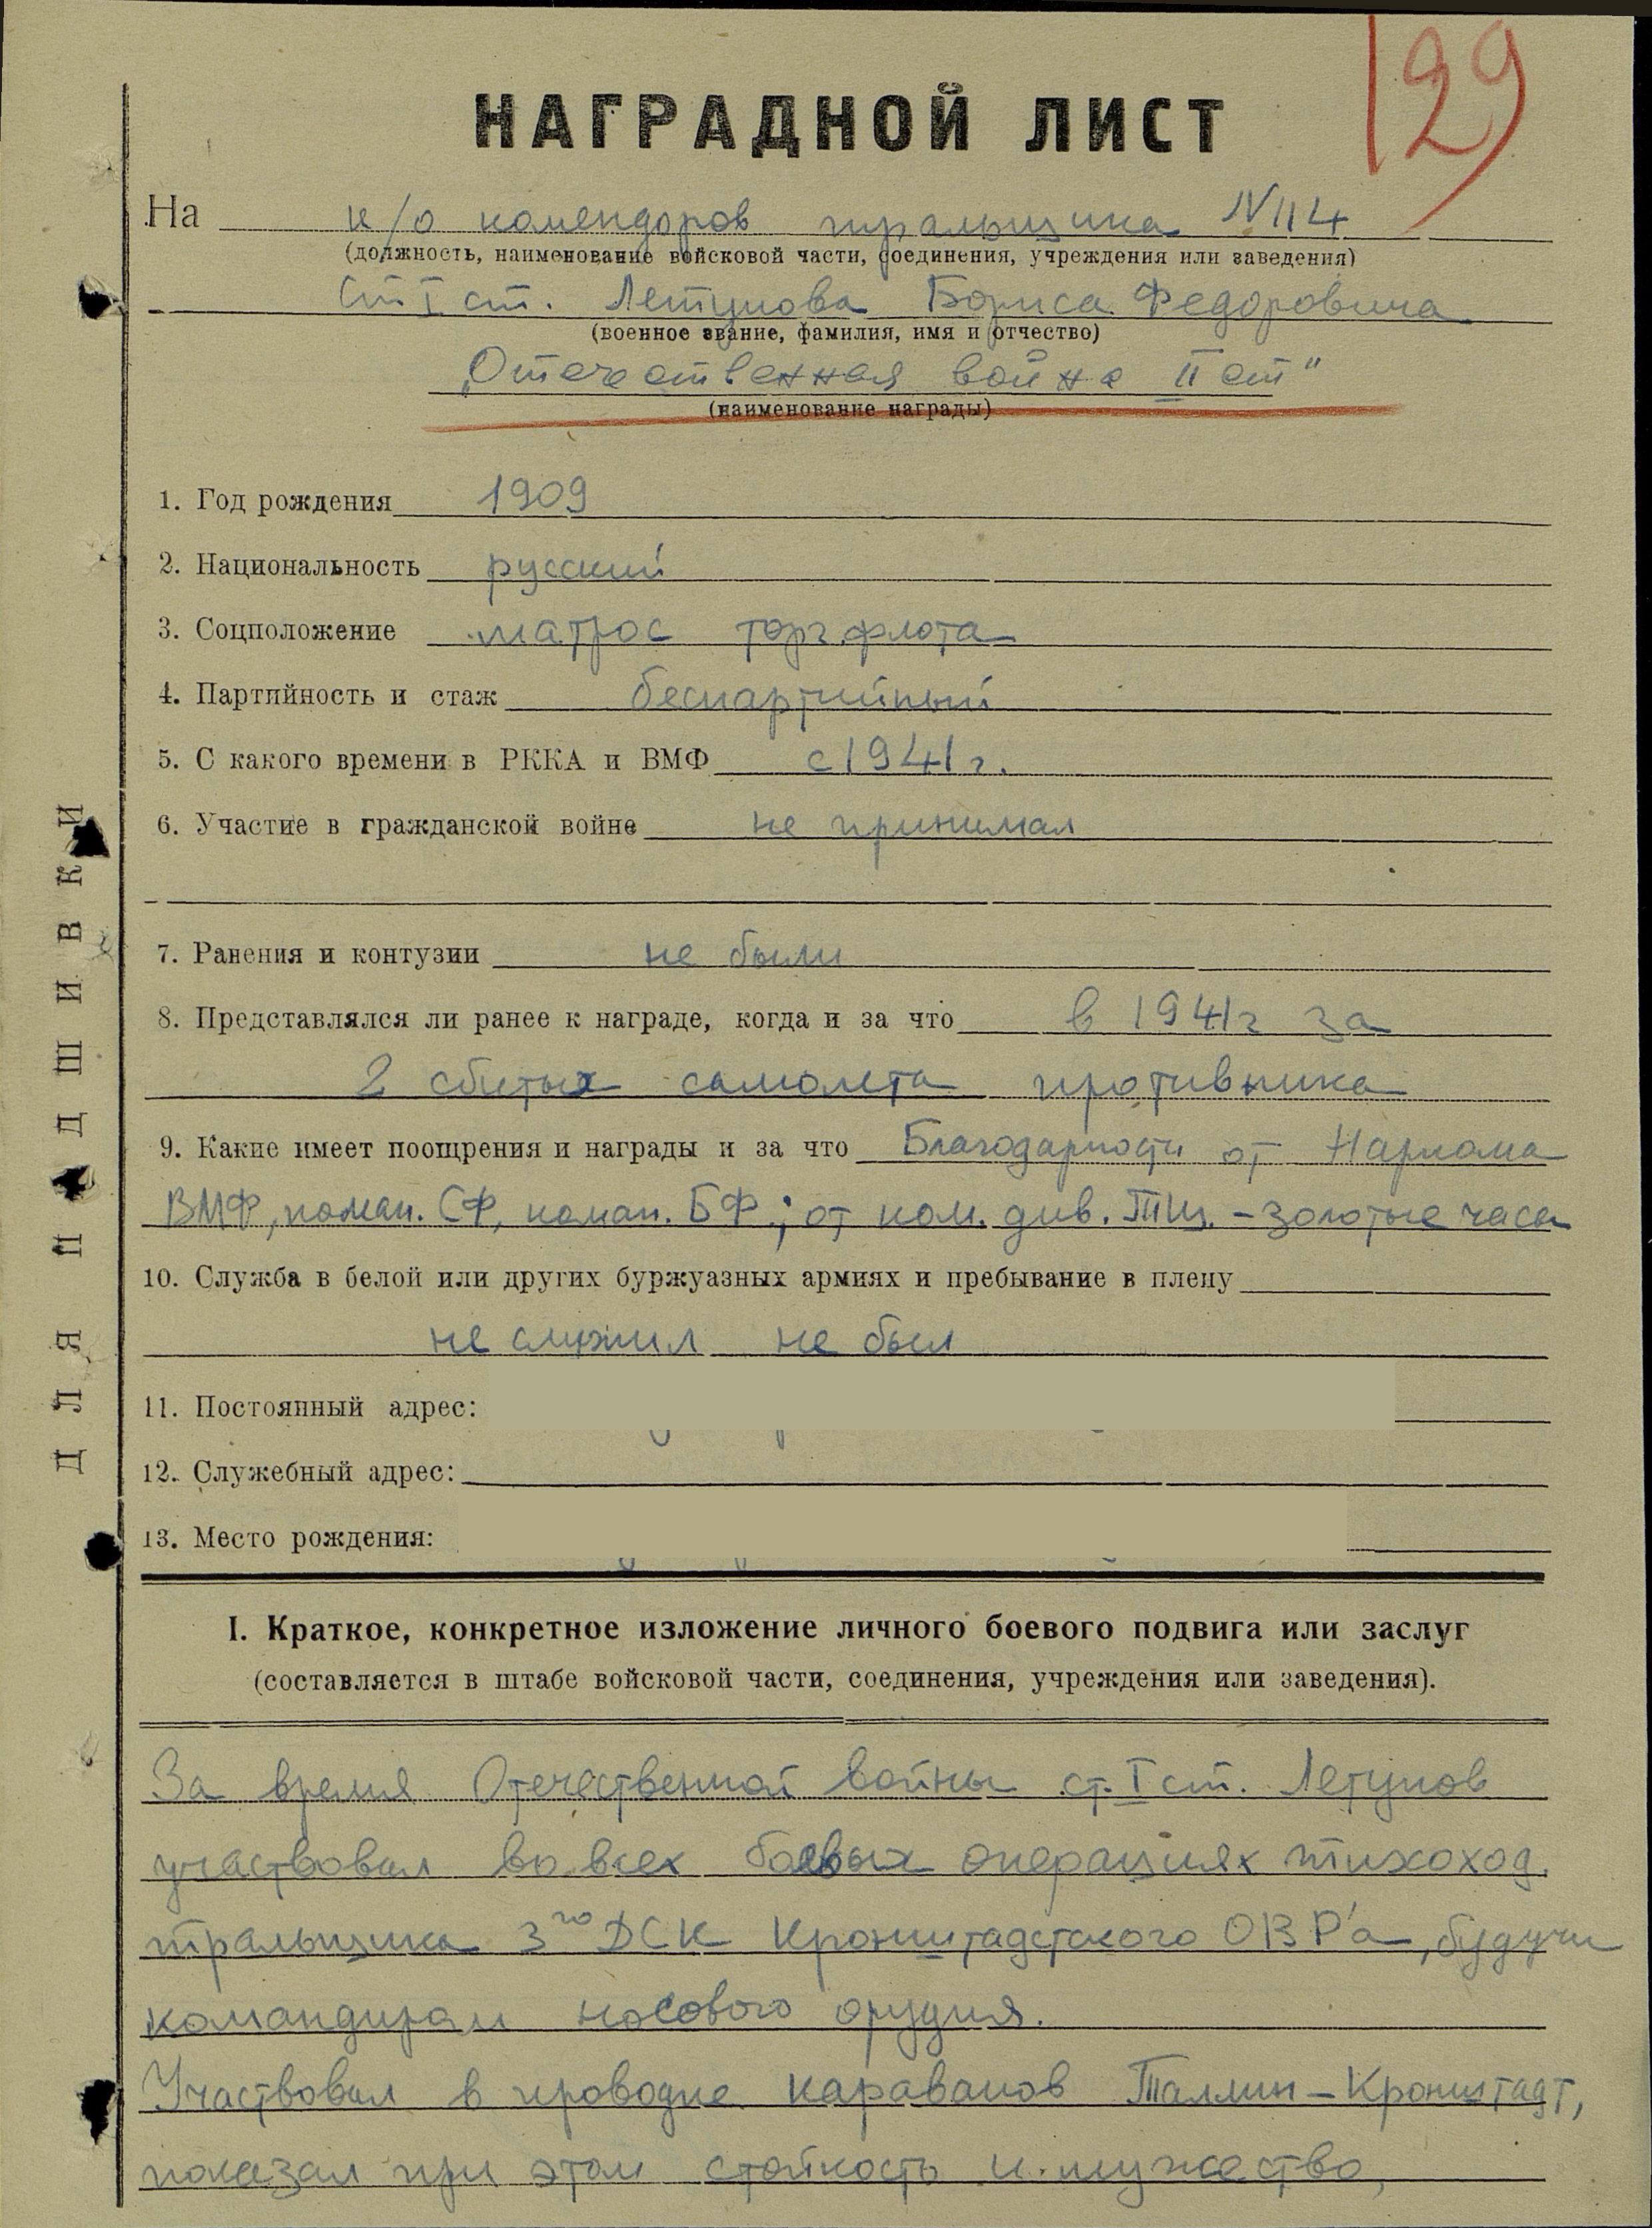 129
НАГРАДНОЙ ЛИСТ
На к/о комендоров тральщика N 114
(должность, наименование войсковой части, соединения, учреждения или заведения)
Ст I ст. Летунова Бориса Федоровича
(военное звание, фамилия, имя и отчество)
„Отечественная война II ст"
(наименование награды)
1. Год рождения 1909
2. Национальность русский
3. Соцположение матрос торг.флота
4. Партийность и стаж беспартийный
5. С какого времени в РККА и ВМФ с 1941 г.
6. Участие в гражданской войне не принимал
7. Ранения и контузии не были
8. Представлялся ли ранее к награде, когда и за что в 1941г за
2 сбитых самолета противника
9. Какие имеет поощрения и награды и за что Благодарности от Наркома
ВМФ, коман. СФ, коман. БФ; от ком. див. ТЩ. - золотые часы
10. Служба в белой или других буржуазных армиях и пребывание в плену
не служил не был
11. Постоянный адрес:
12. Служебный адрес:
13. Место рождения:
I. Краткое, конкретное изложение личного боевого подвига или заслуг
(составляется в штабе войсковой части, соединения, учреждения или заведения).
За время Отечественной войны ст. I ст. Летунов
участвовал во всех боевых операциях тихоход.
тральщика 3го ДСК Кронштадтского ОВР'а, будучи
командиром носового орудия.
Участвовал в проводке караванов Таллин - Кронштадт,
показал при этом стойкость и мужество,
ДЛЯ ПОДШИВКИ